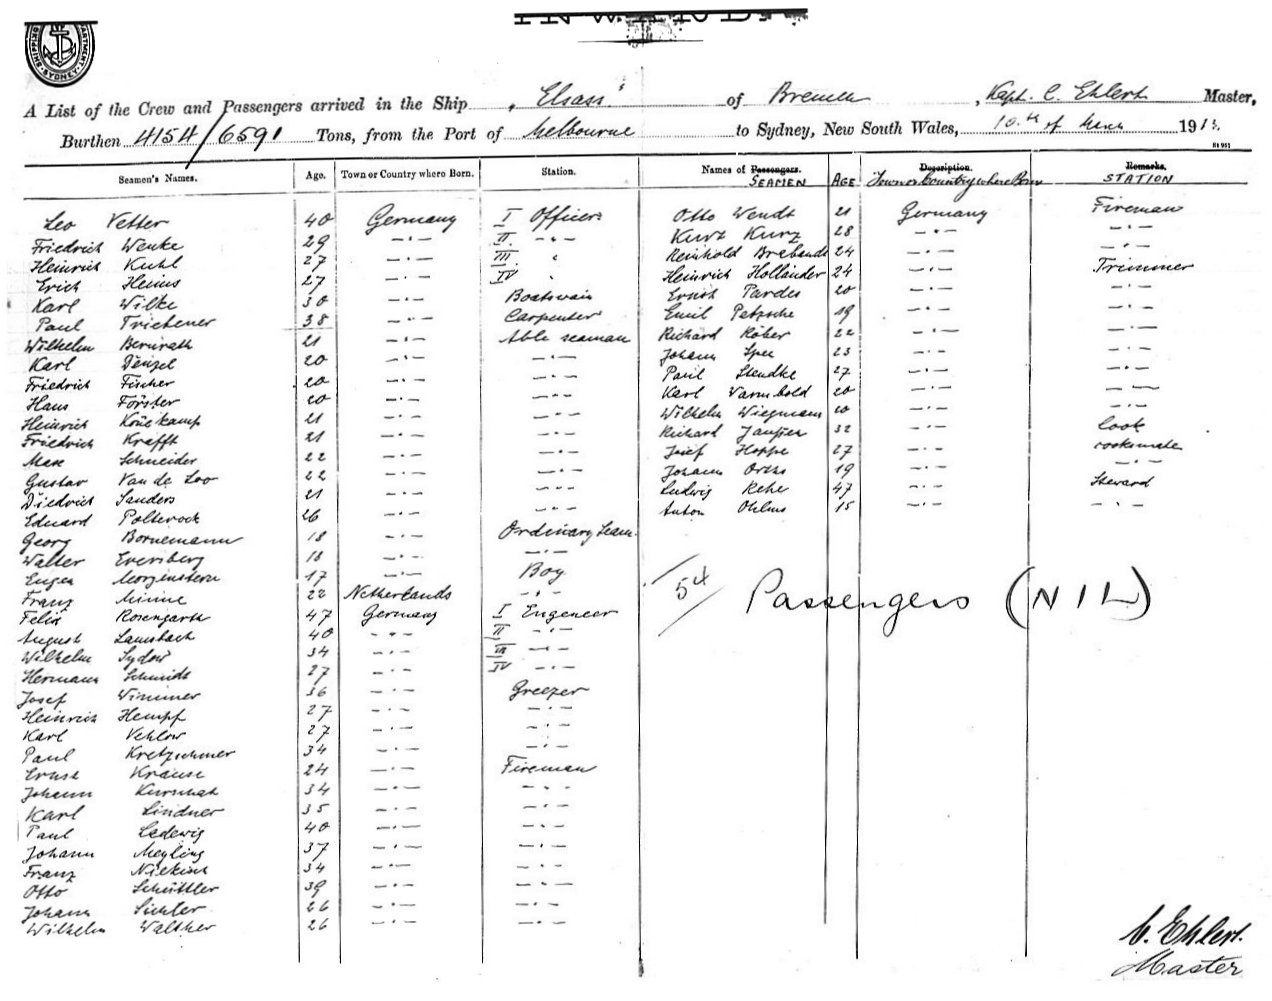 INWARD.
SHIPPING DEPARTMENT SYDNEY
A List of the Crew and Passengers arrived in the Ship "Elsass" of Bremen, Kapt. C. Ehlert Master,
Burthen 4154/6591 Tons, from the Port of Melbourne to Sydney, New South Wales, 10th of March 191
Seamen's Names. Age. Town or Country where Born. Station. Names of Passengers. SEAMEN AGE Description. Town or Country where Born Remarks. STATION
Leo Vetter 40 Germany I Officer
Friedrich Wenke 29 -"- II -"-
Heinrich Kuhl 27 -"- III "
Erich Heins 27 -"- IV "
Karl Wilke 30 -"- Boatswain
Paul Triebener 38 -"- Carpenter
Wilhelm 21 -"- Able seaman
Karl Denzel 20 -"- -"-
Friedrich Fischer 20 -"- -"-
Hans Förster 20 -"- -"-
Heinrich 21 -"- -"-
Friedrich Krafft 21 -"- -"-
Max Schneider 22 -"- -"-
Gustav Van de Loo 22 -"- -"-
Diedrich Sanders 21 -"- -"-
Eduard Polterock 26 -"- -"-
Georg Bornemann 18 -"- Ordinary Seam.
Walter Eversberg 18 -"- -"-
Eugen Morgenstern 17 -"- Boy
Franz Minne 22 Netherlands -"-
Felix Rosengarth 47 Germany I Engeneer
August Lambach 40 -"- II -"-
Wilhelm Sydow 34 -"- III -"-
Hermann Schmidt 27 -"- IV -"-
Josef Wimmer 36 -"- Greezer
Heinrich Hempf 27 -"- -"-
Karl Vehlow 27 -"- -"-
Paul Kretzschmer 34 -"- -"-
Ernst Krause 24 -"- Fireman
Johann Kurschat 34 -"- -"-
Karl Lindner 35 -"- -"-
Paul Ledewig 40 -"- -"-
Johann Meyling 37 -"- -"-
Franz 34 -"- -"-
Otto Schüttler 39 -"- -"-
Johann Sichler 26 -"- -"-
Wilhelm Walther 26 -"- -"-
Otto Wendt 21 Germany Fireman
Kurt Kurz 28 -"- -"-
Reinhold Brebandt 24 -"- -"-
Heinrich Hollander 24 -"- Trimmer
Ernst Pardes 20 -"- -"-
Emil Petzsche 19 -"- -"-
Richard Röber 22 -"- -"-
Johann Spee 23 -"- -"-
Paul Stendke 27 -"- -"-
Karl Warmbold 20 -"- -"-
Wilhelm Wiegmann 20 -"- -"-
Richard 32 -"- Cook
Josef Hoppe 27 -"- cooksmate
Johann Orths 19 -"- -"-
Ludwig Rehe 47 -"- Steward
Anton Ohlms 15 -"- -"-
54
Passengers (NIL)
C. Ehlert.
Master